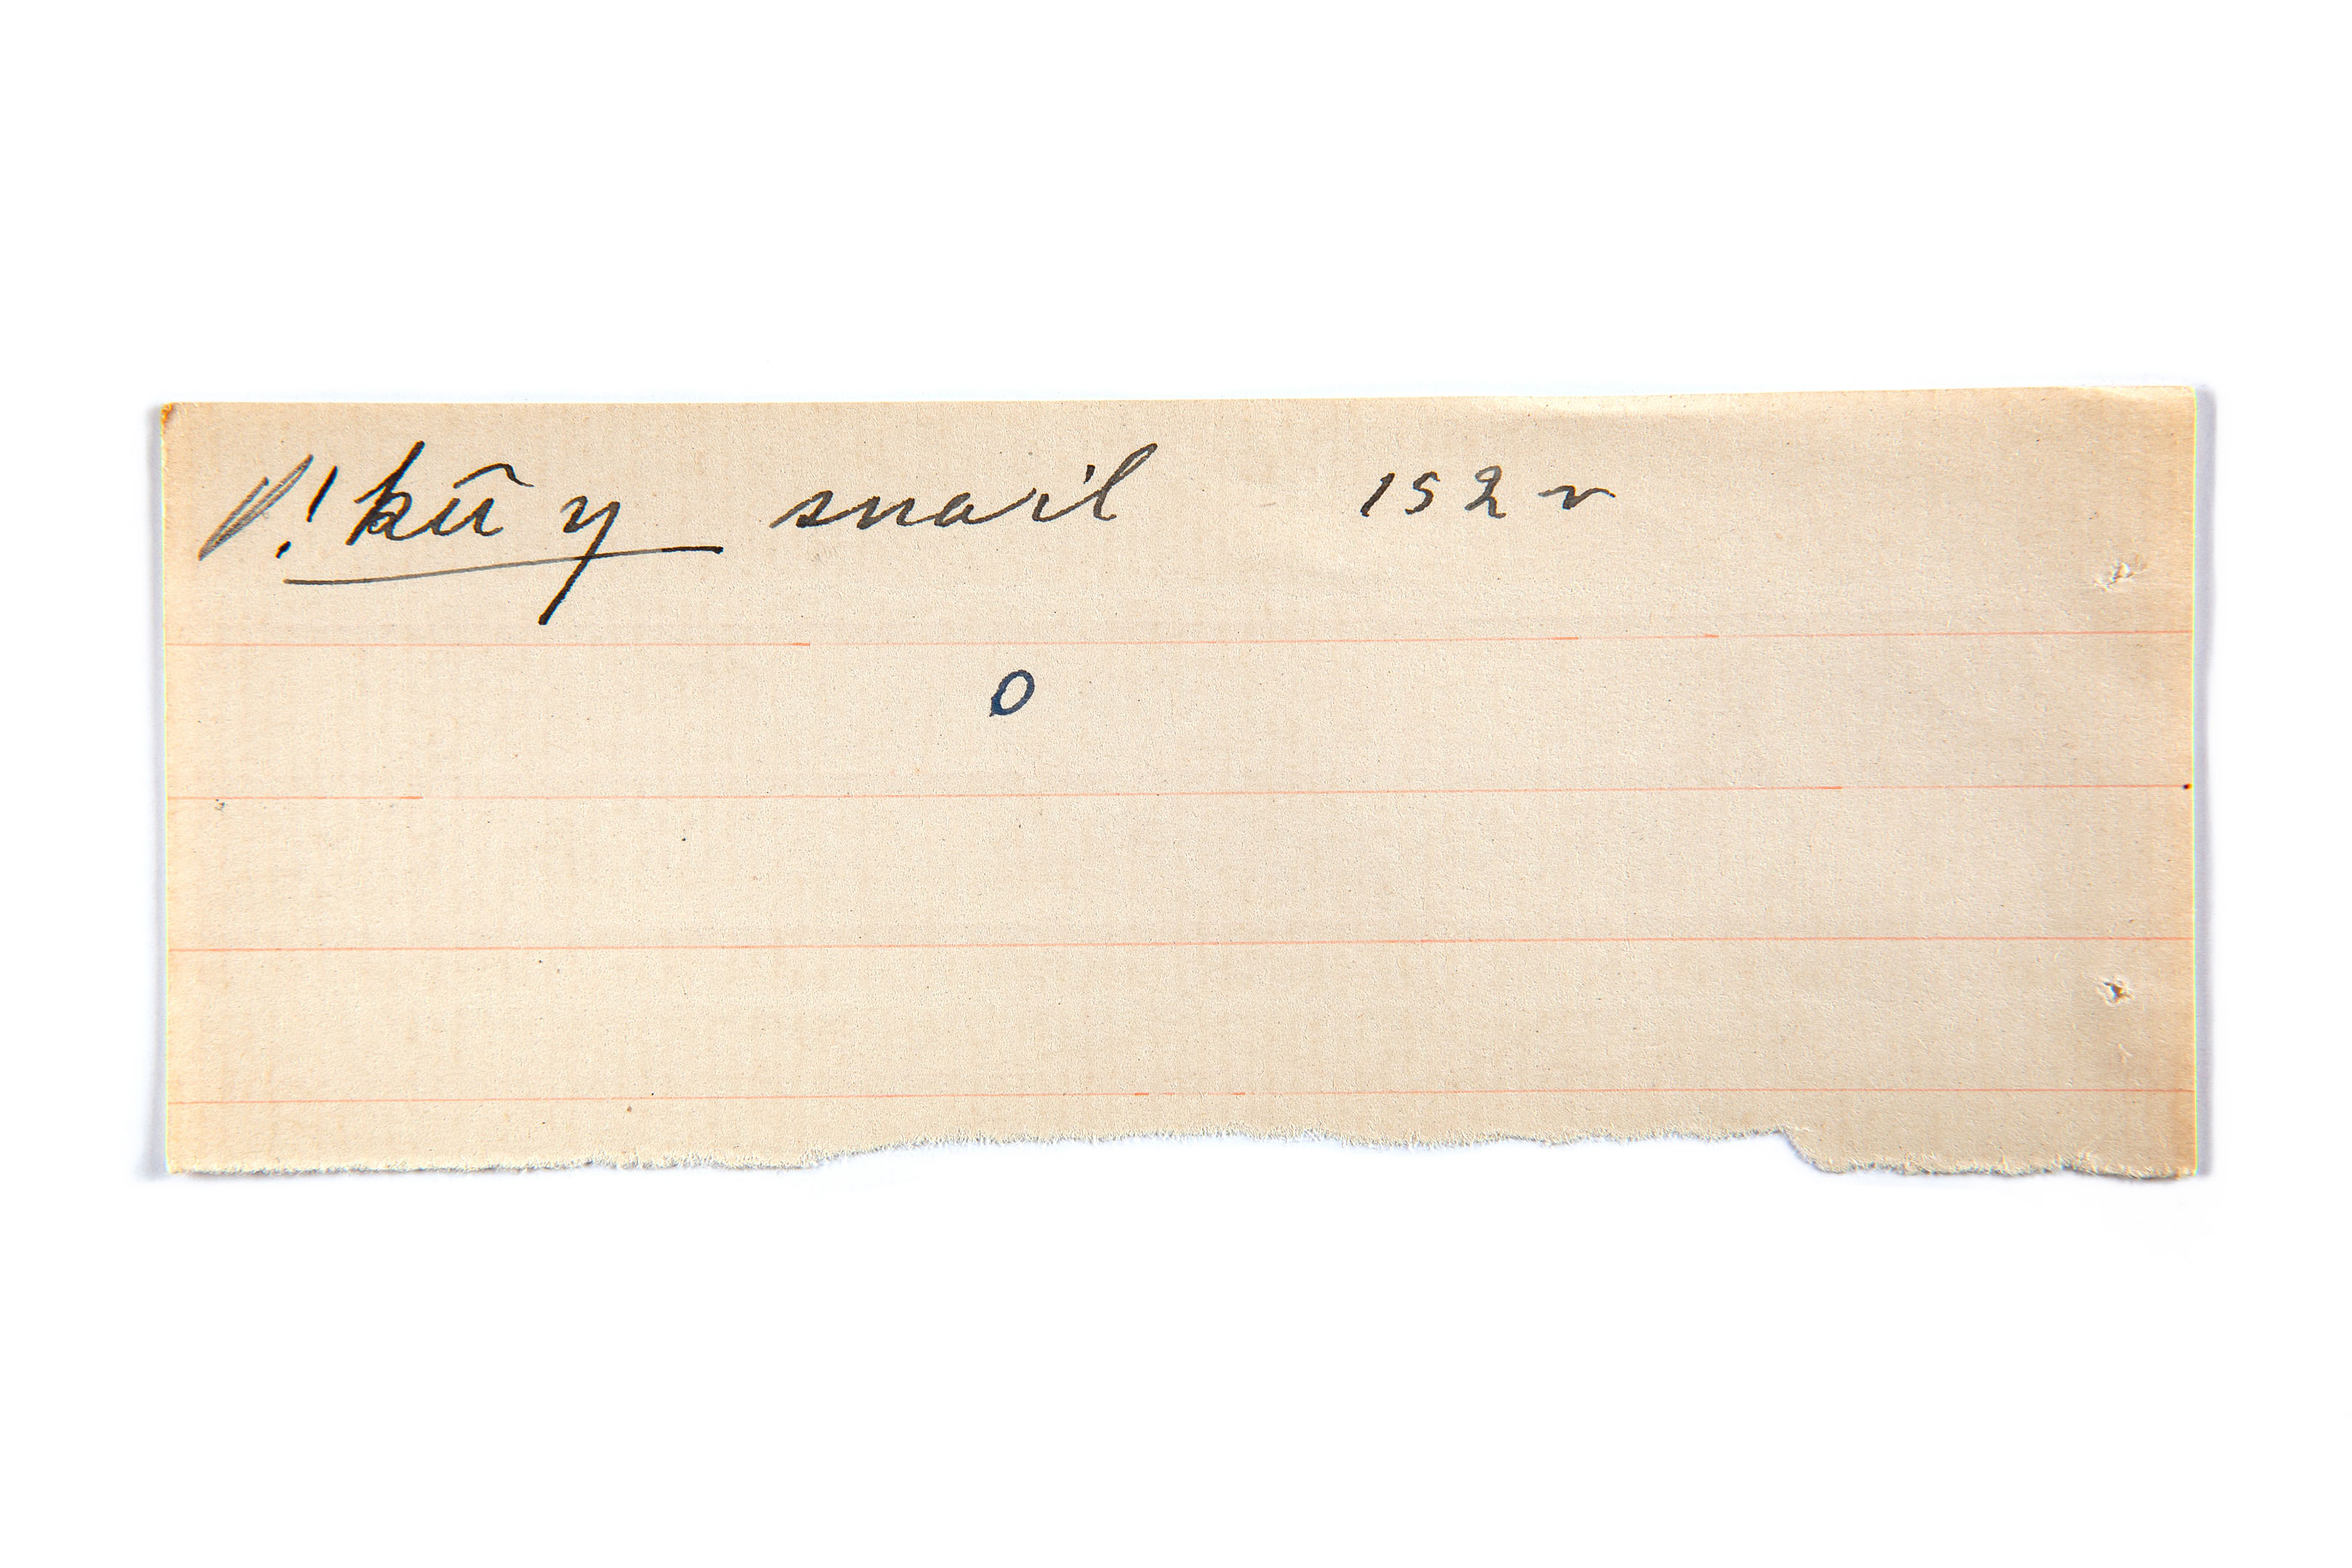 !kūy snail 152 v
O